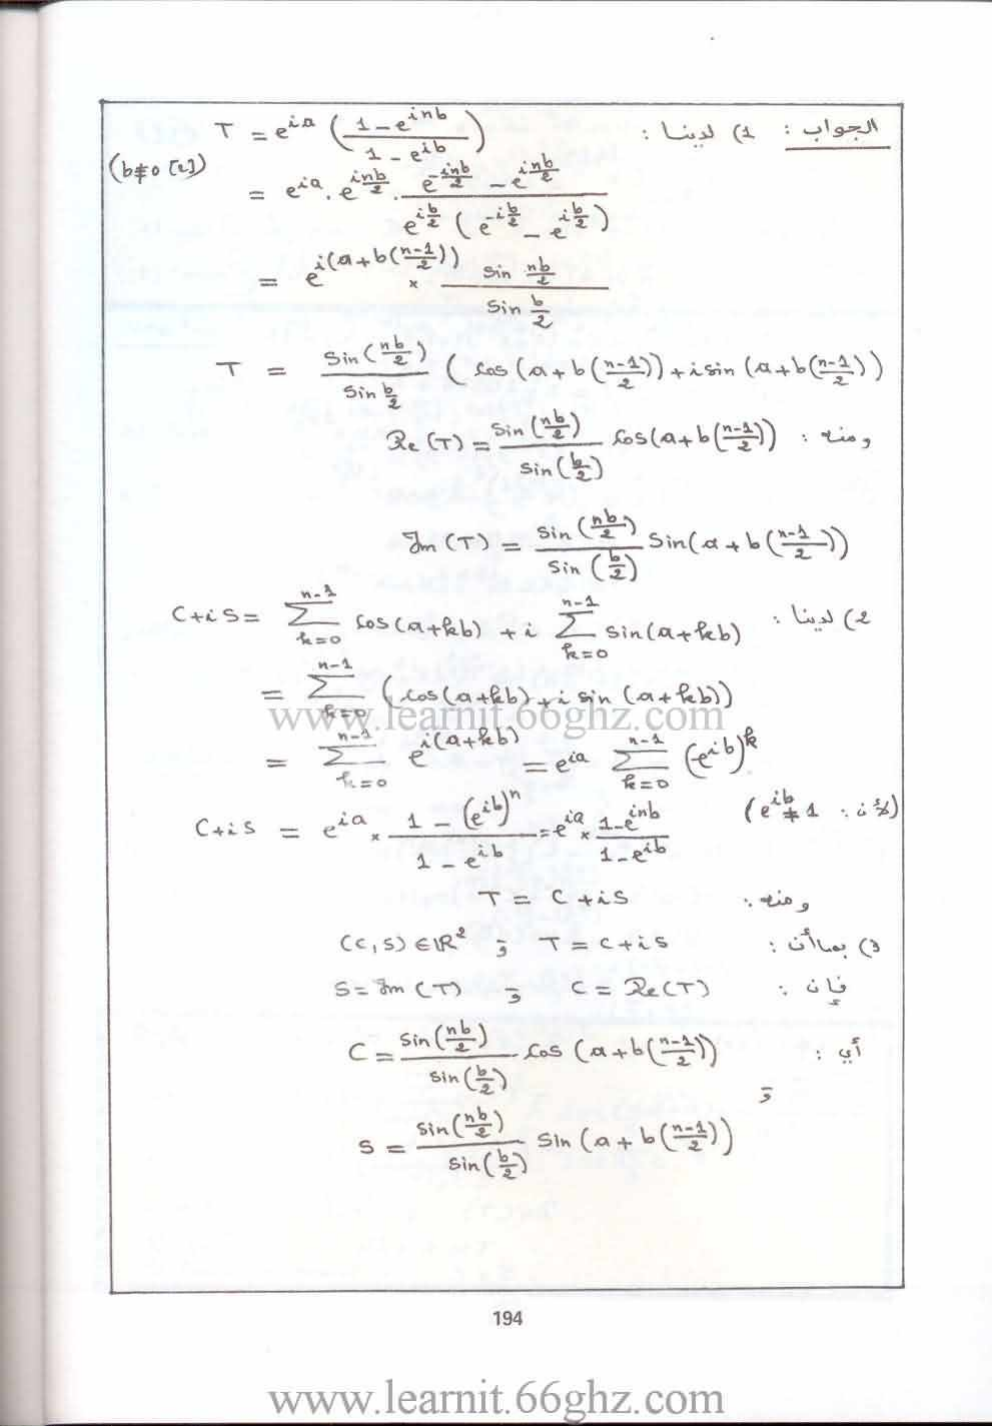 الجواب : 1) لدينا : T = e^{ia} ( (1 - e^{inb}) / (1 - e^{ib}) )
(b≠0 [2])
= e^{ia} . e^{inb/2} . (e^{-inb/2} - e^{inb/2}) / (e^{ib/2} (e^{-ib/2} - e^{ib/2}))
= e^{i(a+b((n-1)/2))} × (sin nb/2) / (sin b/2)
T = (Sin(nb/2)) / (Sin b/2) (cos(a+b((n-1)/2)) + i sin(a+b((n-1)/2))
ومنه : Re(T) = (Sin(nb/2)) / (sin(b/2)) cos(a+b((n-1)/2))
Im(T) = (sin(nb/2)) / (sin(b/2)) Sin(a+b((n-1)/2))
2) لدينا : C+iS = Σ_{k=0}^{n-1} cos(a+kb) + i Σ_{k=0}^{n-1} sin(a+kb)
= Σ_{k=0}^{n-1} (cos(a+kb) + i sin(a+kb))
www.learnit.66ghz.com
= Σ_{k=0}^{n-1} e^{i(a+kb)} = e^{ia} Σ_{k=0}^{n-1} (e^{ib})^k
C+iS = e^{ia} × (1 - (e^{ib})^n) / (1 - e^{ib}) = e^{ia} × (1-e^{inb}) / (1-e^{ib}) (لأن : e^{ib} ≠ 1)
ومنه : T = C+iS
3) بما أن : T = C+iS و (C,S) ∈ IR²
فإن : C = Re(T) و S = Im(T)
أي : C = (sin(nb/2)) / (sin(b/2)) cos(a+b((n-1)/2))
و
S = (sin(nb/2)) / (sin(b/2)) Sin(a+b((n-1)/2))
194
www.learnit.66ghz.com